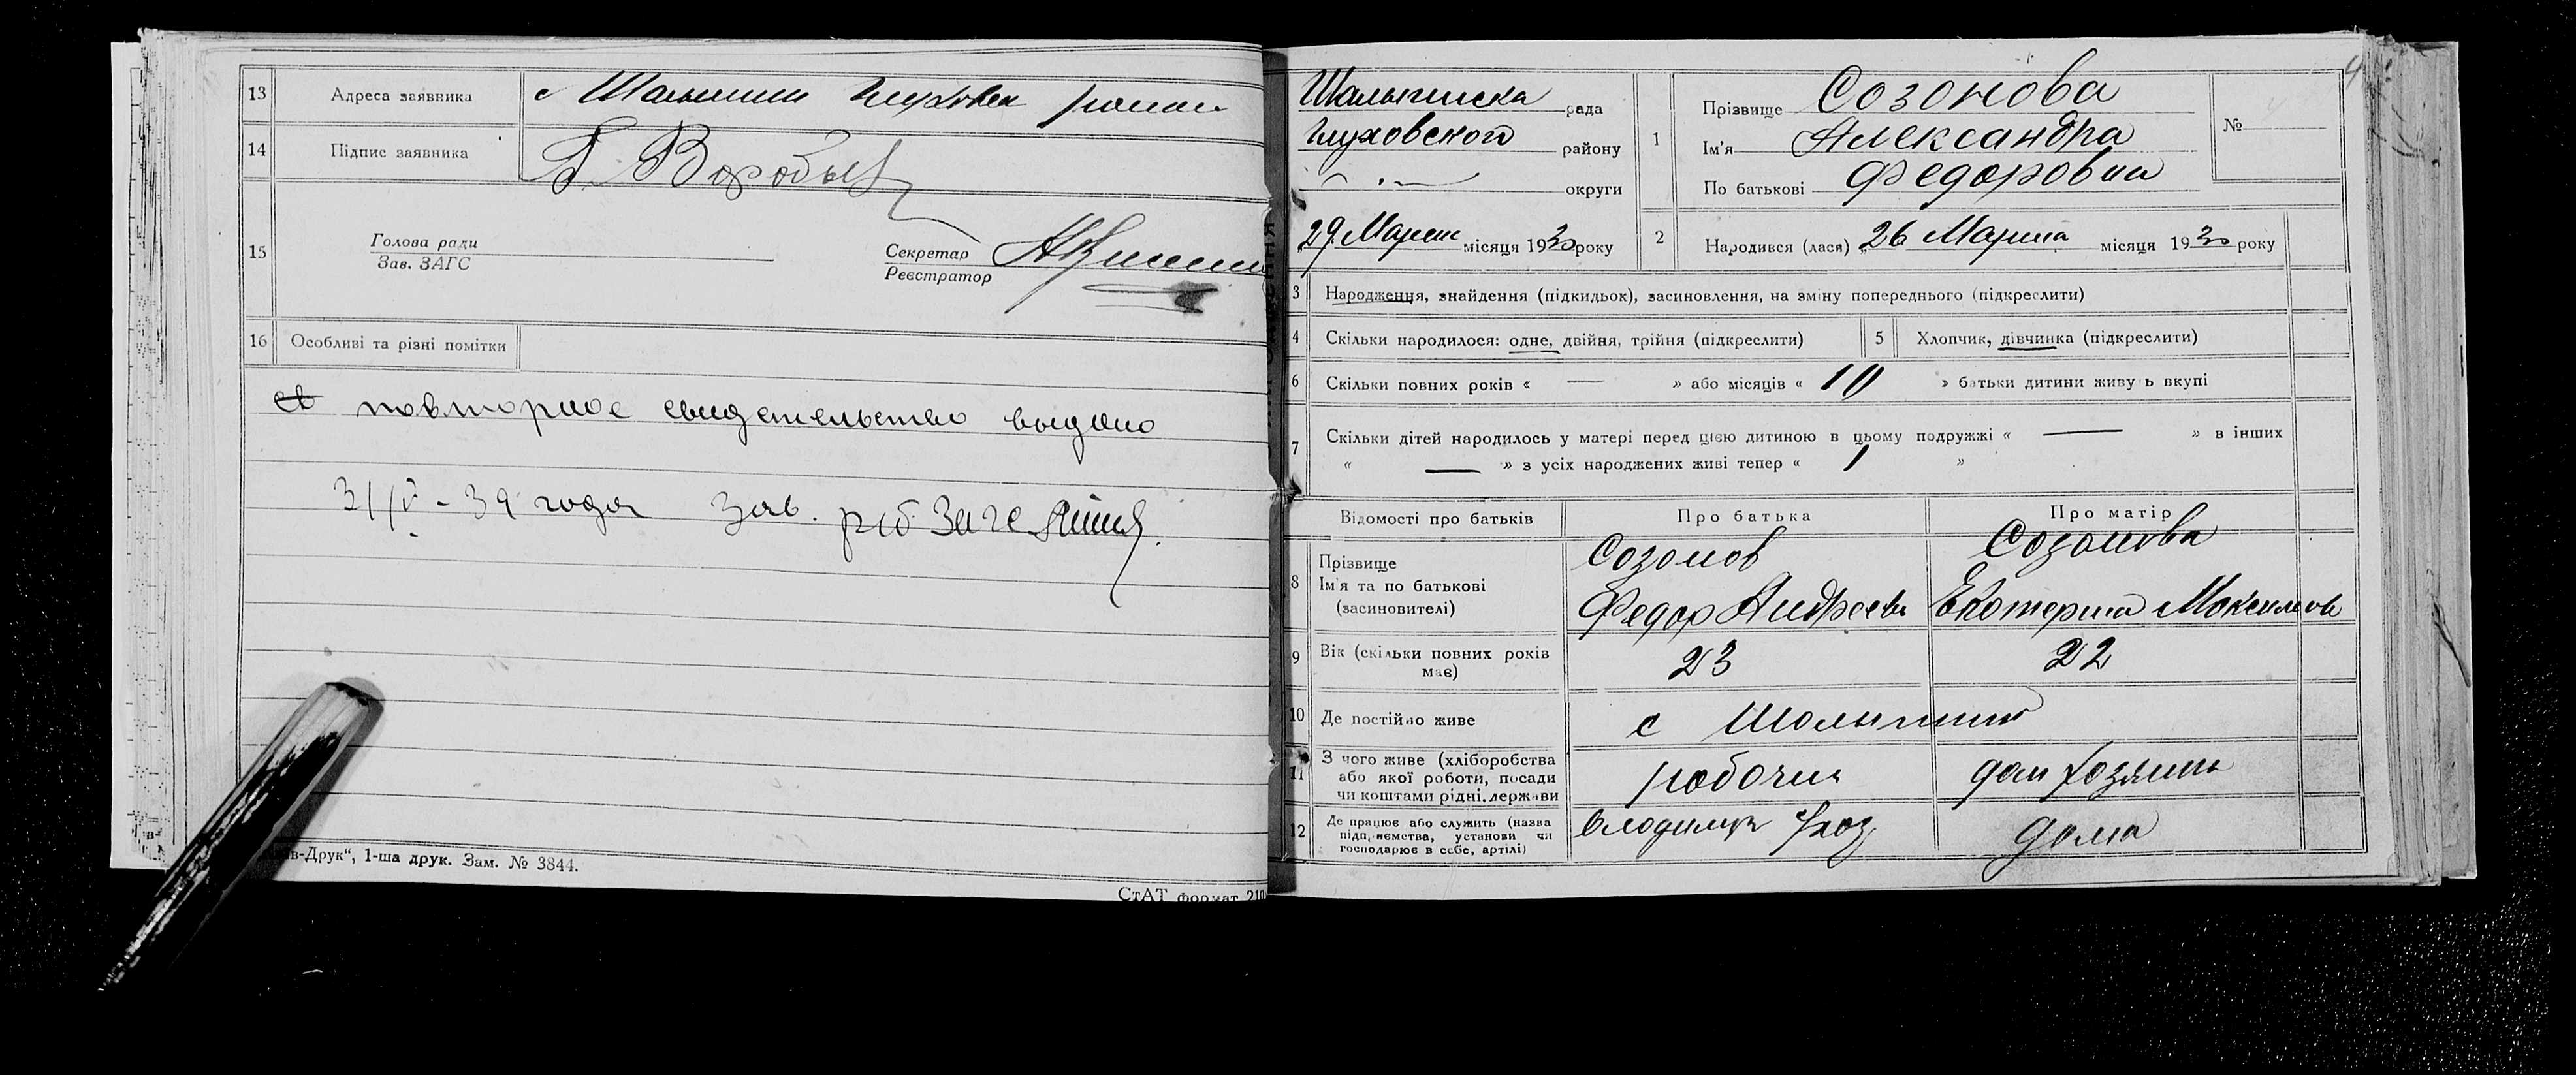 13 Адреса заявника с Шалыгин Глуховск район
14 Підпис заявника Воробьев
15 Голова ради
Зав. ЗАГС
Секретар
Реєстратор
16 Особливі та різні помітки
повторное свидетельство выдано
3/IV - 39 года Зав. рб Загс
в-Друк“, 1-ша друк. Зам. № 3844.
СтАТ формат 210
Шалыгинска рада
Глуховского району
округи
29 Марта місяця 1930 року
1 Прізвище Созонова
Ім'я Александра
По батькові Федоровна
№
2 Народився (лася) 26 Марта місяця 1930 року
3 Народження, знайдення (підкидьок), засиновлення, на зміну попереднього (підкреслити)
4 Скільки народилося: одне, двійня, трійня (підкреслити) 5 Хлопчик, дівчинка (підкреслити)
6 Скільки повних років « — » або місяців « 10 » батьки дитини живу ь вкупі
7 Скільки дітей народилось у матері перед цією дитиною в цьому подружжі « — » в інших
« — » з усіх народжених живі тепер « 1 »
Відомості про батьків Про батька Про матір
8 Прізвище Созонов Созонова
Ім'я та по батькові
(засиновителі) Федор Андреев Екатерина Максимовн
9 Вік (скільки повних років має) 23 22
10 Де постійно живе с Шалыгин
11 З чого живе (хліборобства
або якої роботи, посади
чи коштами рідні, держави робочий дом хозяйк
12 Де працює або служить (назва
підп, иємства, установи чи
господарює в себе, артілі) дома